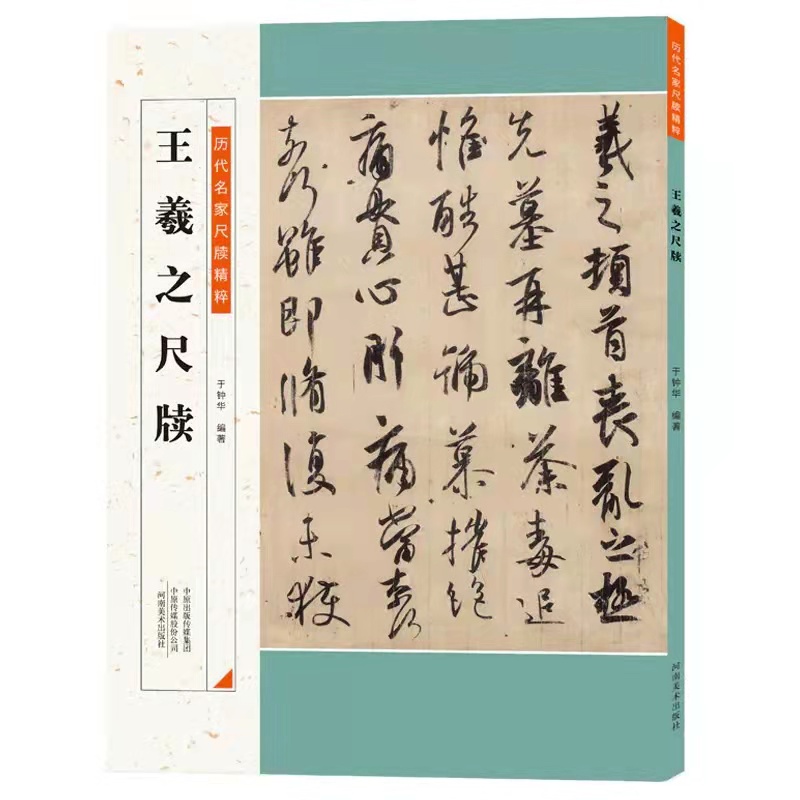 历代名家尺牍精粹
王羲之尺牍
于钟华 编著
中原出版传媒集团
中原传媒股份公司
河南美术出版社
羲之顿首丧乱之极
先墓再離荼毒追
惟酷甚號慕摧絶
痛貫心肝痛當奈何
奈何雖即脩復未獲
历代名家尺牍精粹
王羲之尺牍
于钟华 编著
河南美术出版社